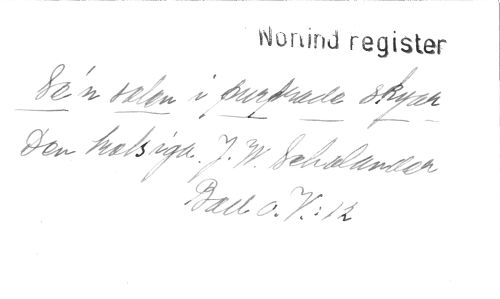 Norlind register
Se'n solen i purprade skyar
Den kolsiga. J. W. Scholander
V:12